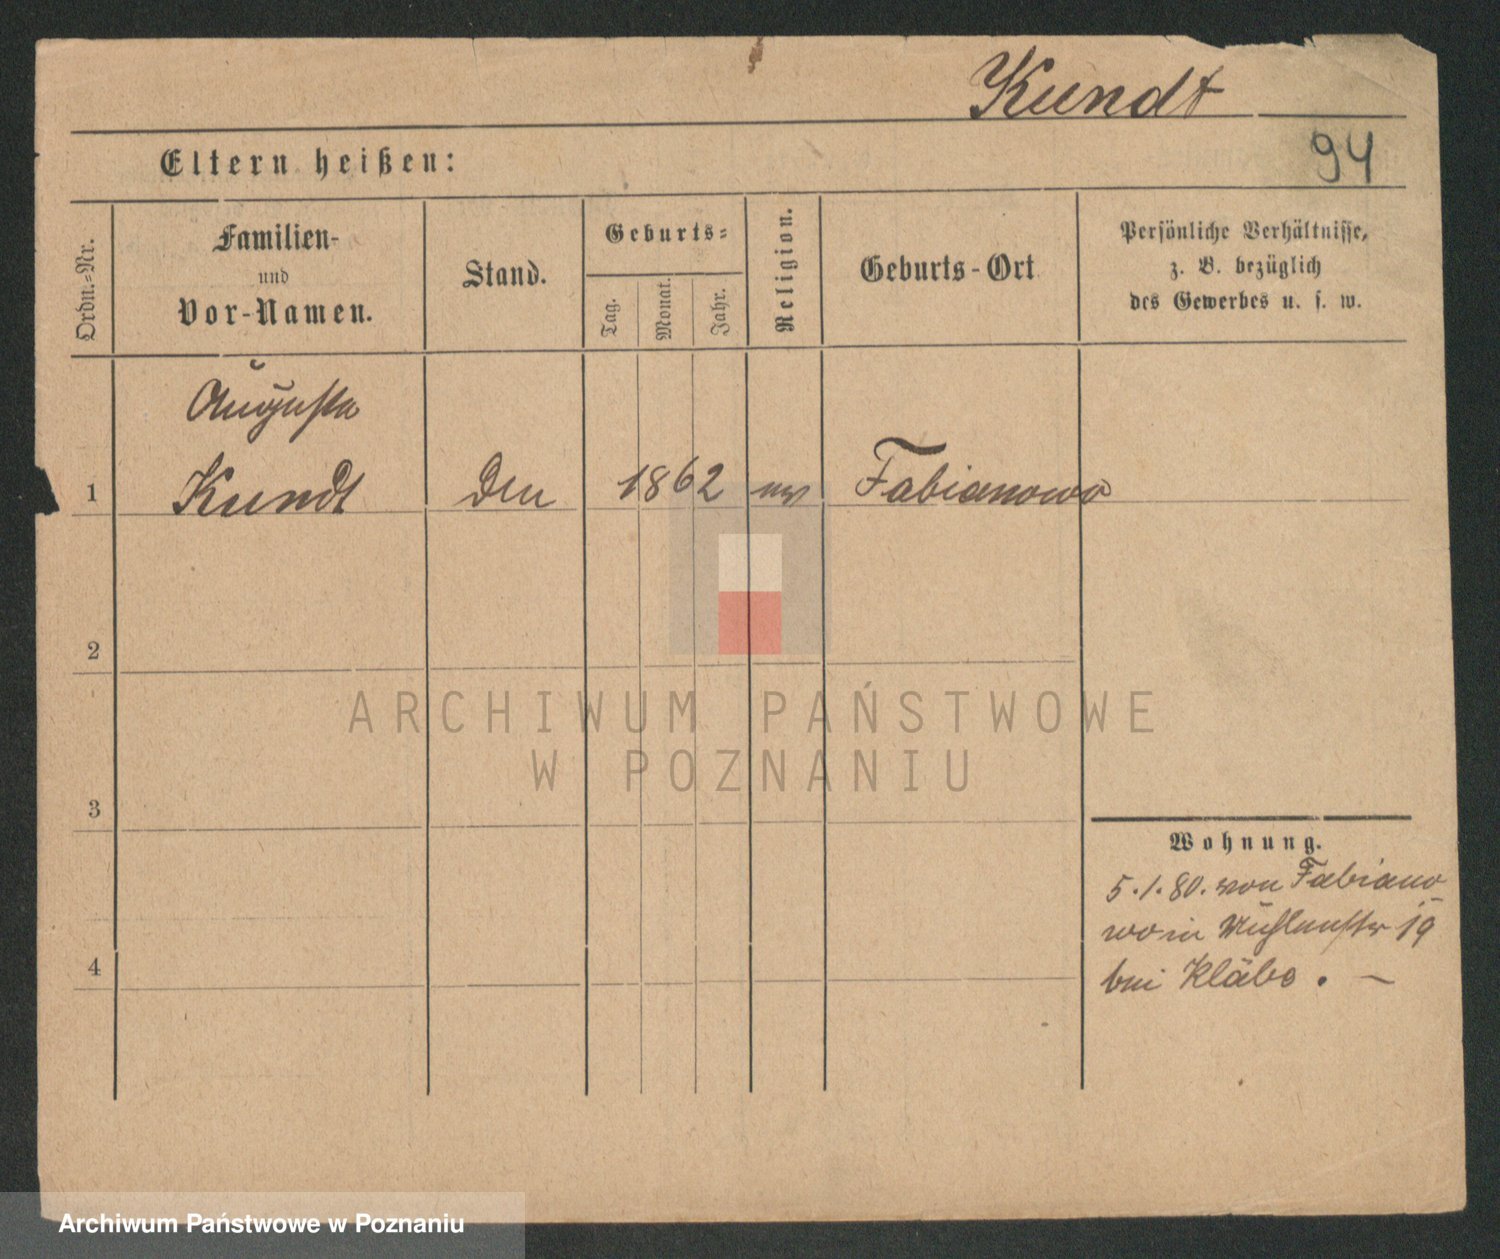 Kundt
94
Eltern heißen:
Ordn.-Nr.
Familien-
und
Vor-Namen.
Stand.
Geburts-
Tag.
Monat.
Jahr.
Religion.
Geburts-Ort
Persönliche Verhältnisse,
z. B. bezüglich
des Gewerbes u. s. w.
Augusta
1 Kundt 1862 Fabianowo
2
3
4
Wohnung.
5.1.80. von Fabiano
wo in Mühlenstr 19
bei Kläbe. –
ARCHIWUM PAŃSTWOWE
W POZNANIU
Archiwum Państwowe w Poznaniu